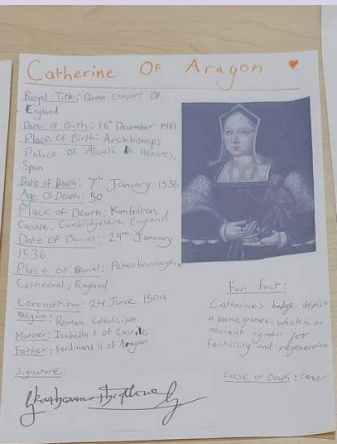 Catherine Of Aragon
Royal Title: Queen Consort Of
England
Date of Birth: 16th December 1485
Place Of Birth: Archbishops
Palace of Alcalá de Henares,
Spain
Date of Death: 7th January 1536
Age Of Death: 50
Place of Death: Kimbolton
Castle, Cambridgeshire, England
Date of Burial: 29th January
1536
Place of Burial: Peterborough
Cathedral, England
Coronation: 24 June 1509
Religion: Roman Catholicism
Mother: Isabella I of Castile
Father: Ferdinand II of Aragon
Signature:
Fun Fact:
Catherines badge depicts
a pomegranate which is an
ancient symbol for
fertility and regeneration
Cause of Death: Cancer